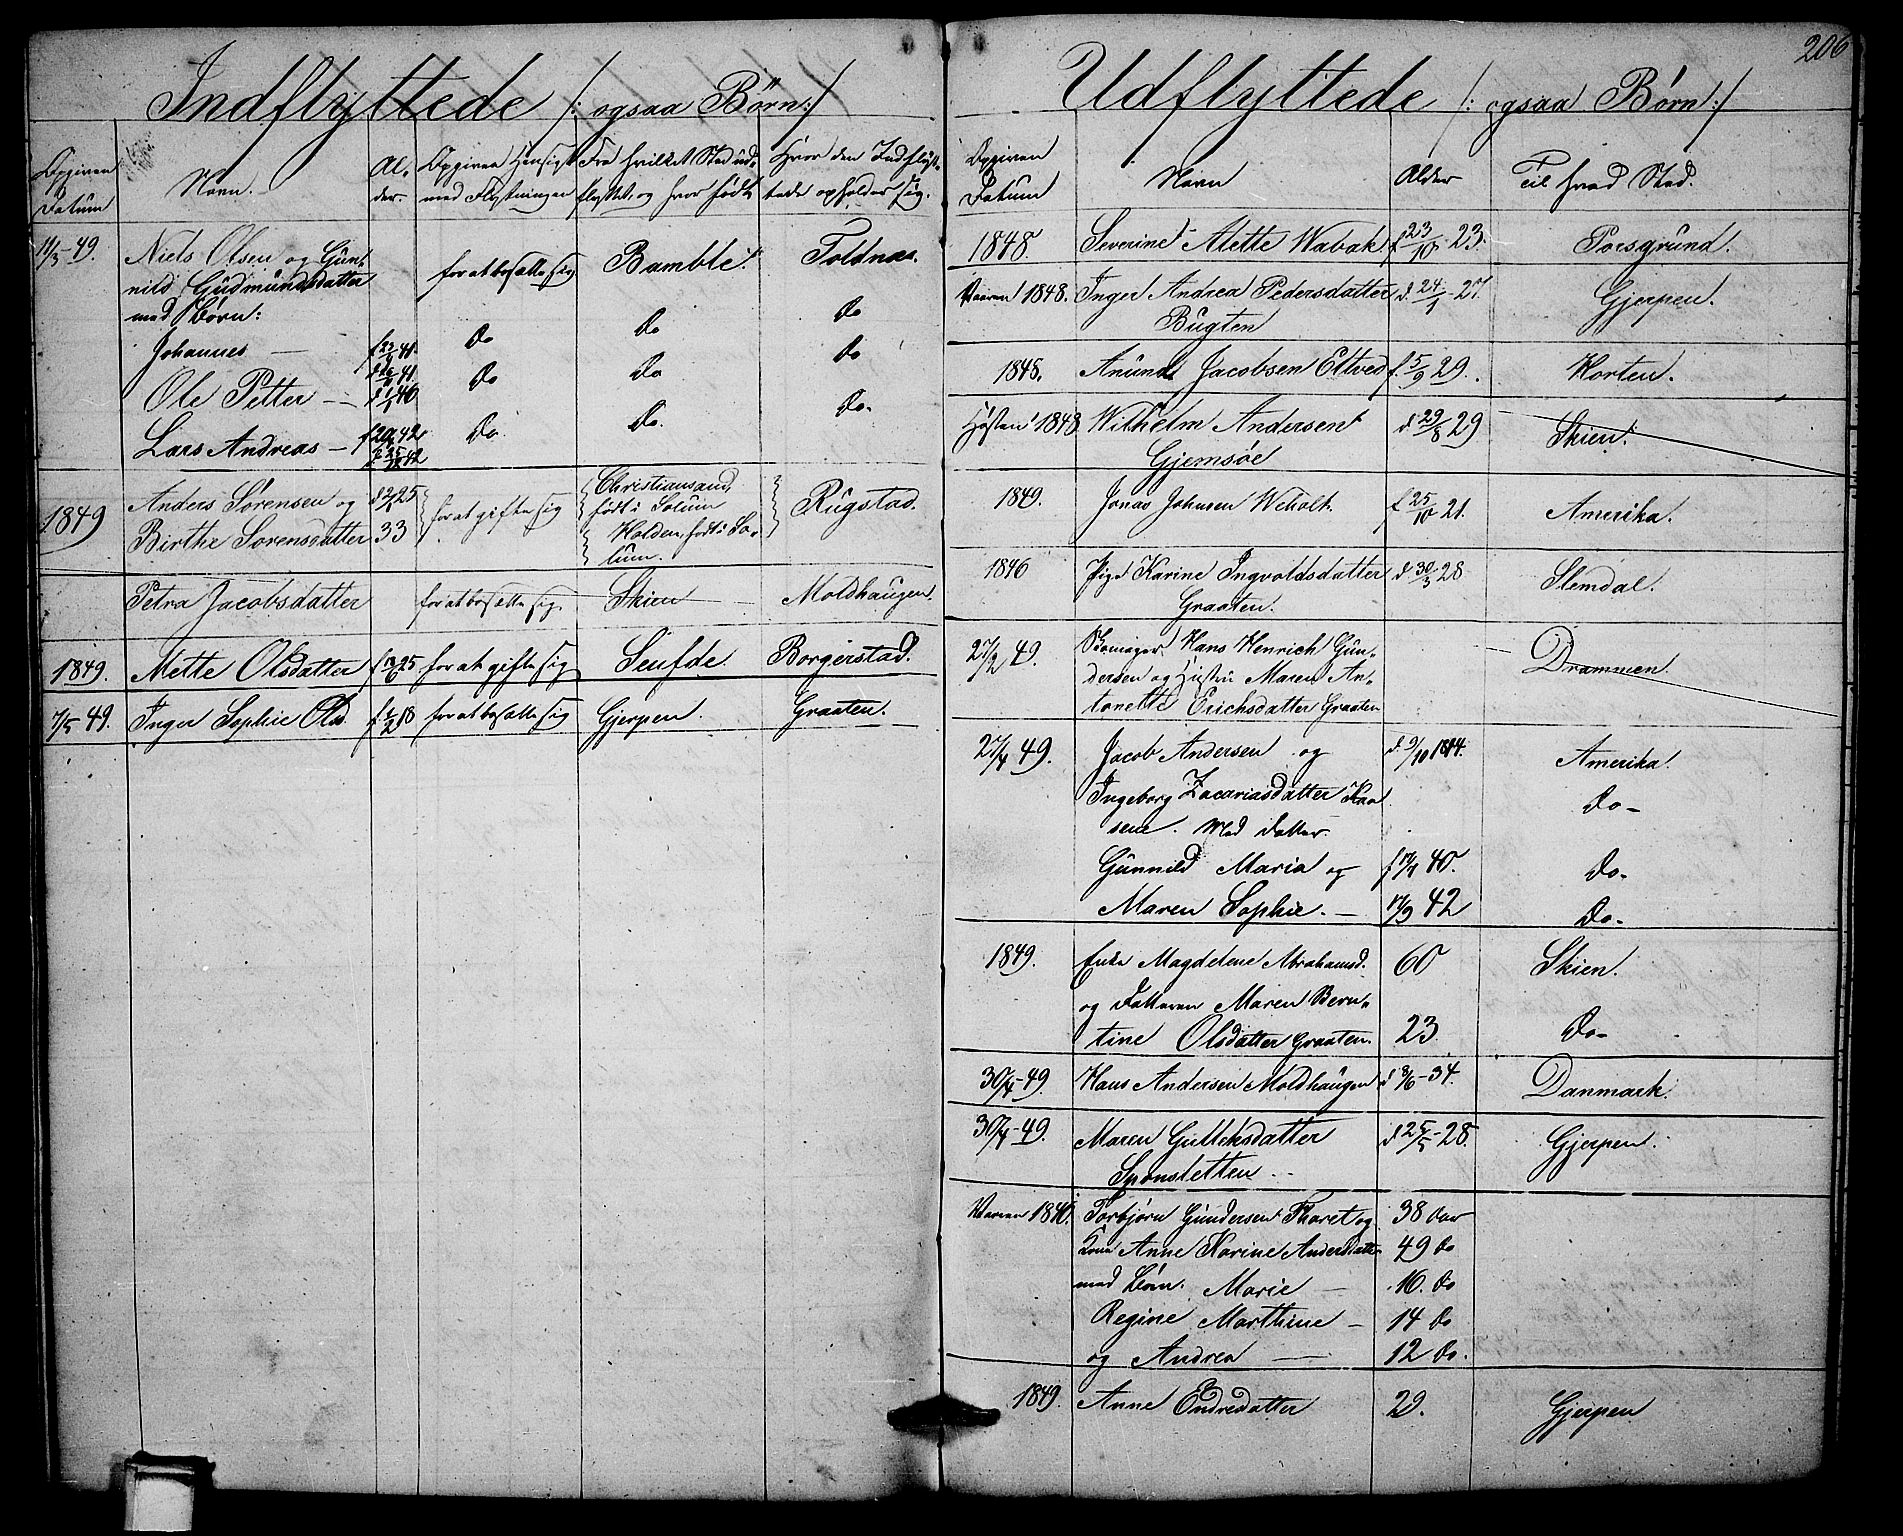 206
Indflyttede /: ogsaa Børn :/
Opgiven Datum
Navn.
Alder.
Opgiven Hensigt med Flytningen
Fra hvilket Sted udflyttet, og hvor født
Hvor den Indflyttede opholder sig.
11/3-49. Niels Olsen og Gunnild Gudmundsdatter med Børn: for at bosætte sig Bamble. Toldnæs.
Johannes — do do do
Ole Petter — do do do
Lars Andreas — do. do. do.
1849 Anders Sørensen og 25 for at gifte sig Christiansand, født i Solum Rugstad.
Birthe Sørensdatter 33 Holden, født i Solum.
Petra Jacobsdatter for at bosætte sig. Skien Moldhaugen.
1849. Mette Olsdatter 25 for at gifte sig Seufde Borgerstad.
7/5 49. Inger Sophie Olsd. 18 for at bosætte sig Gjerpen. Graaten.
Udflyttede /: ogsaa Børn :/
Opgiven Datum
Navn
Alder
Til hvad Sted.
1848. Severine Alette Wabak f 23/10 23. Porsgrund.
Vaaren 1848. Inger Andrea Pedersdatter d. 24/1-27. Gjerpen.
Bugten
1848. Anund Jacobsen Eltved f 5/9 29. Horten.
Høsten 1848 Wilhelm Andersen d 29/8 29 Skien.
Gjemsøe
1849. Jonas Johnsen Weholt. f 25/10-21. Amerika.
1846 Pige Karine Ingvoldsdatter d 30/3 28 Slemdal.
Graaten.
27/2 49. Hans Henrich Gun-
dersen og Hustru Maren An- Drammen.
tonette Erichsdatter Graaten
27/4 49. Jacob Andersen og d. 9/10 1814. Amerika.
Ingeborg Zacariasdatter Kaa- do-
sene. Med Døttre
Gunnild Maria og f 17/1 40. do-
Maren Sophie. — 17/9 42 do-
1849. Enke Magdelene Abrahamsd. 60 Skien.
og Datteren Maren Bern-
tine Olsdatter Graaten. 23. do-
30/4-49. Hans Andersen Moldhaugen d 3/6-34. Danmark.
30/4-49. Maren Gulleksdatter d 25/5-28. Gjerpen.
Sponstetten
Vaaren 1846. Torbjørn Gundersen Floret og 38 Aar
Kone Anne Karine Andersdatter 49 do
med Børn. Marie — 16. do
Regine Marthine — 14 do
og Andrea — 12 do.
1849. Anne Endresdatter 29. Gjerpen